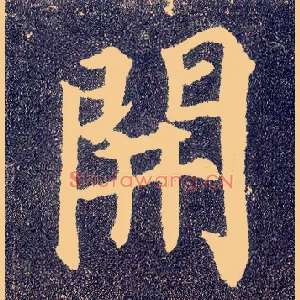 開
Shufawang.CN